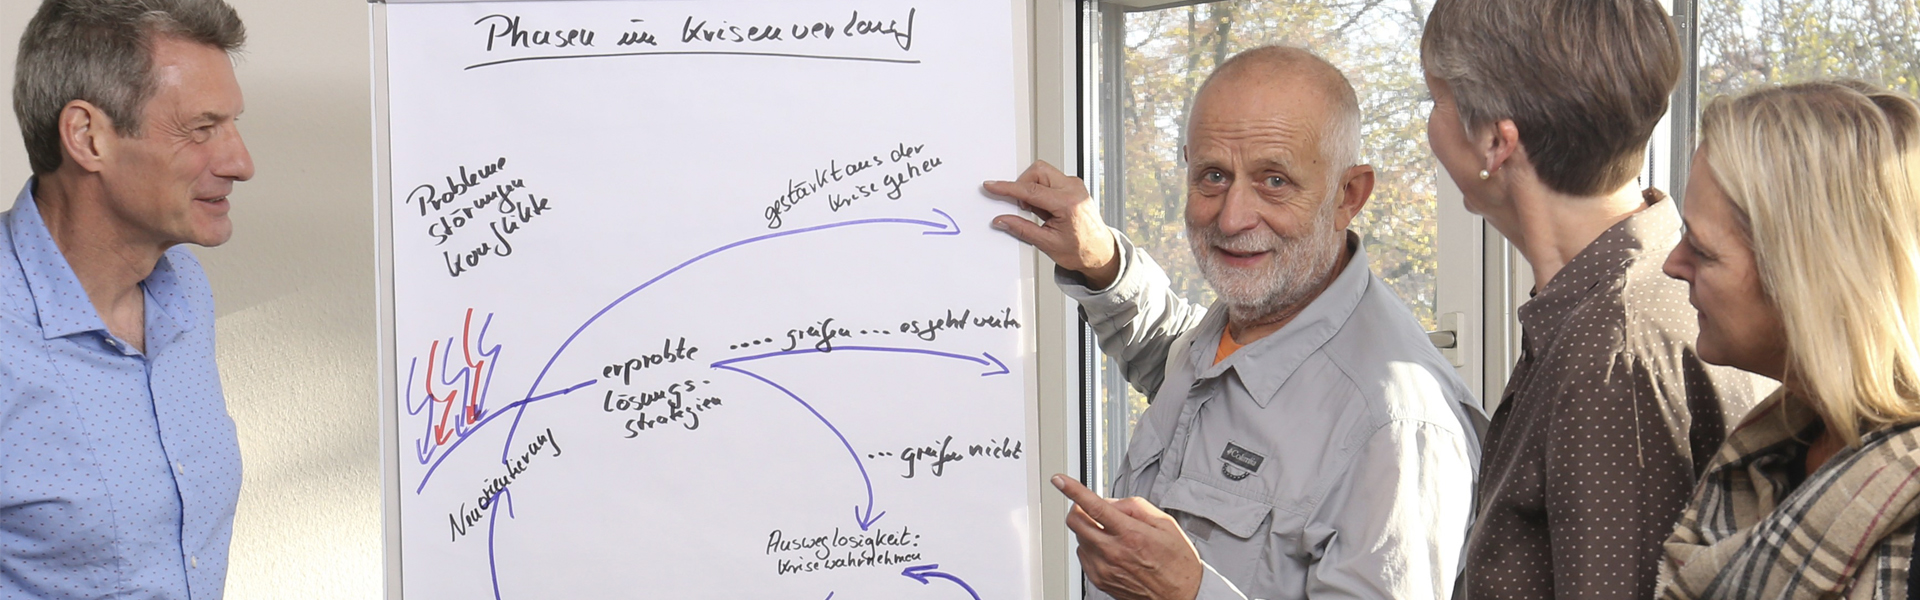 Phasen im Krisenverlauf
Probleme
Störungen
Konflikte
gestärkt aus der
Krise gehen
.... greifen ... es geht weiter
erprobte
Lösungs-
strategien
... greifen nicht
Neuorientierung
Ausweglosigkeit:
Krise wahrnehmen
Columbia